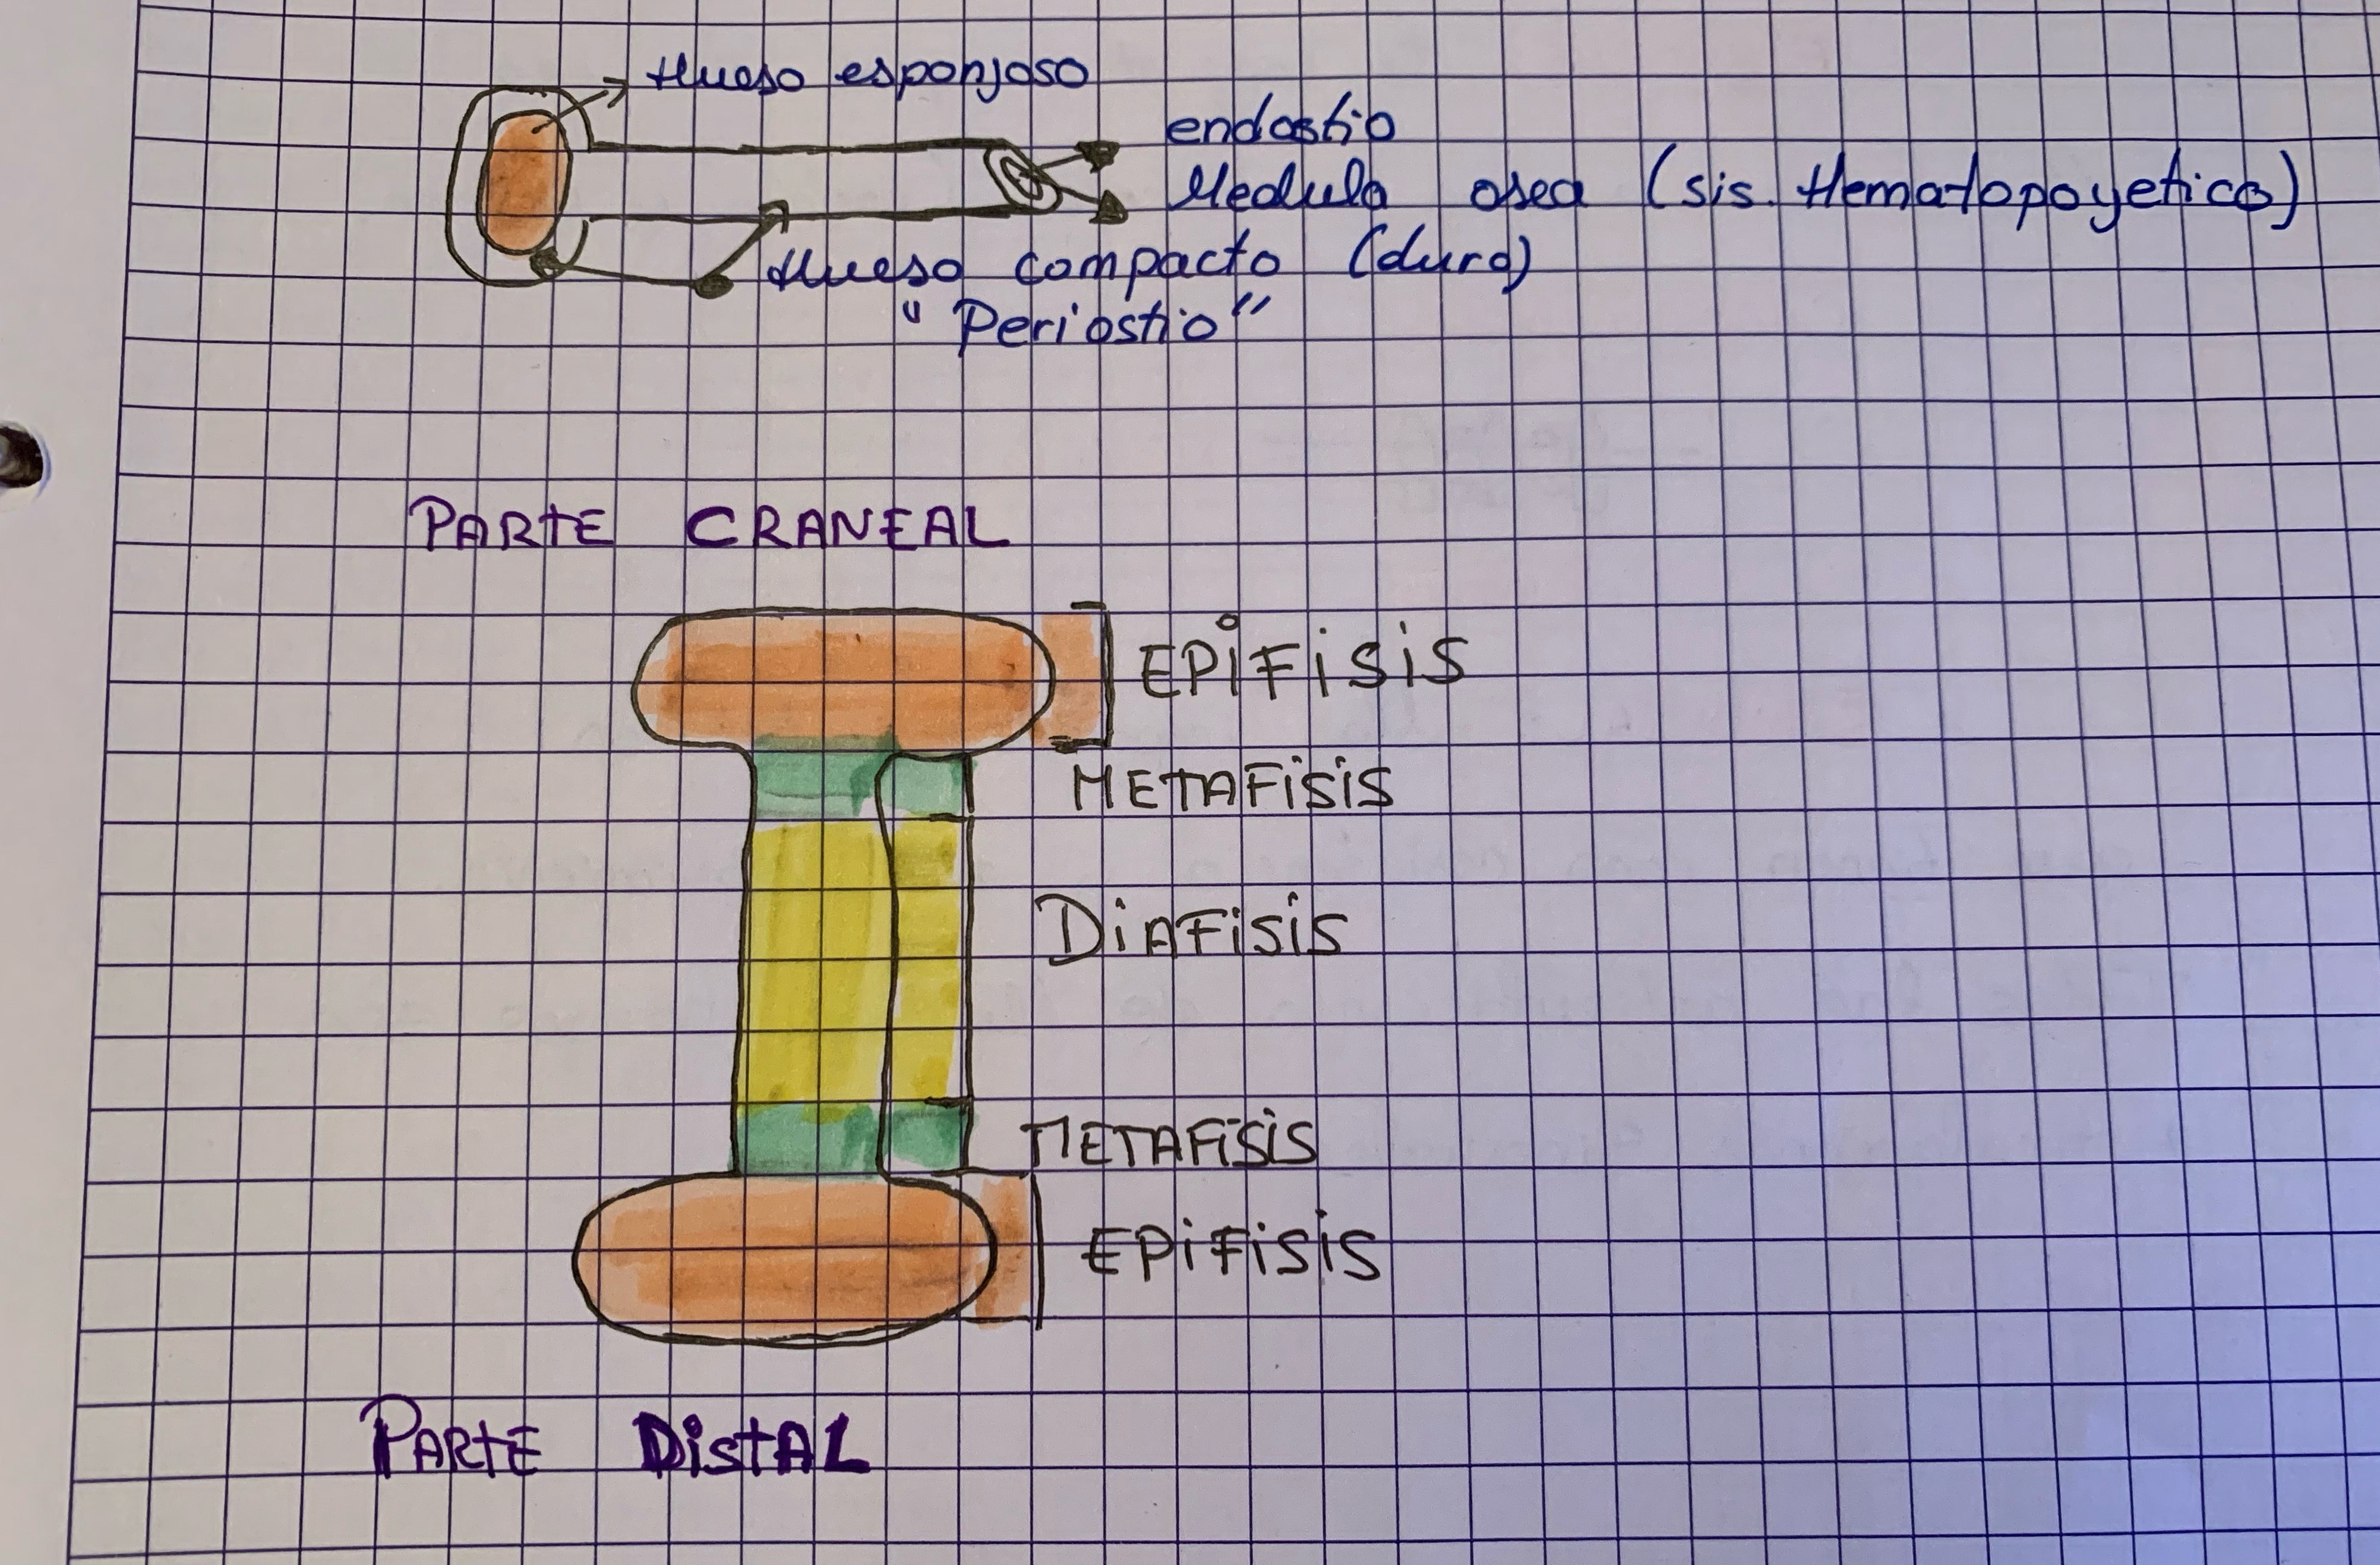 Hueso esponjoso
endostio
Medula osea (sis. Hematopoyetico)
Hueso compacto (duro)
"Periostio"
PARTE CRANEAL
EPiFisis
METAFisis
DiAFisis
METAFisis
EPiFisis
PARTE DistAL